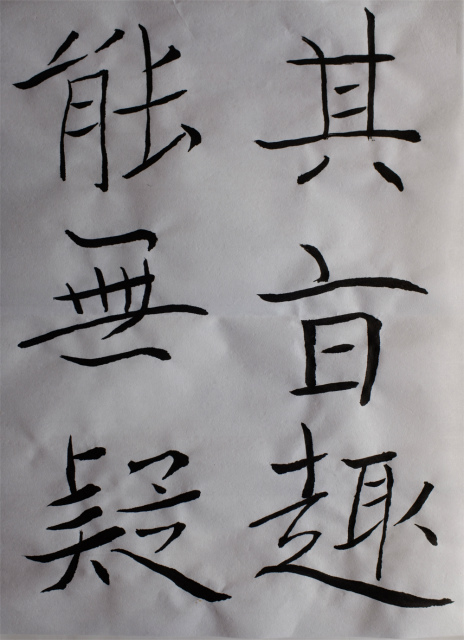 其旨趣
能無疑